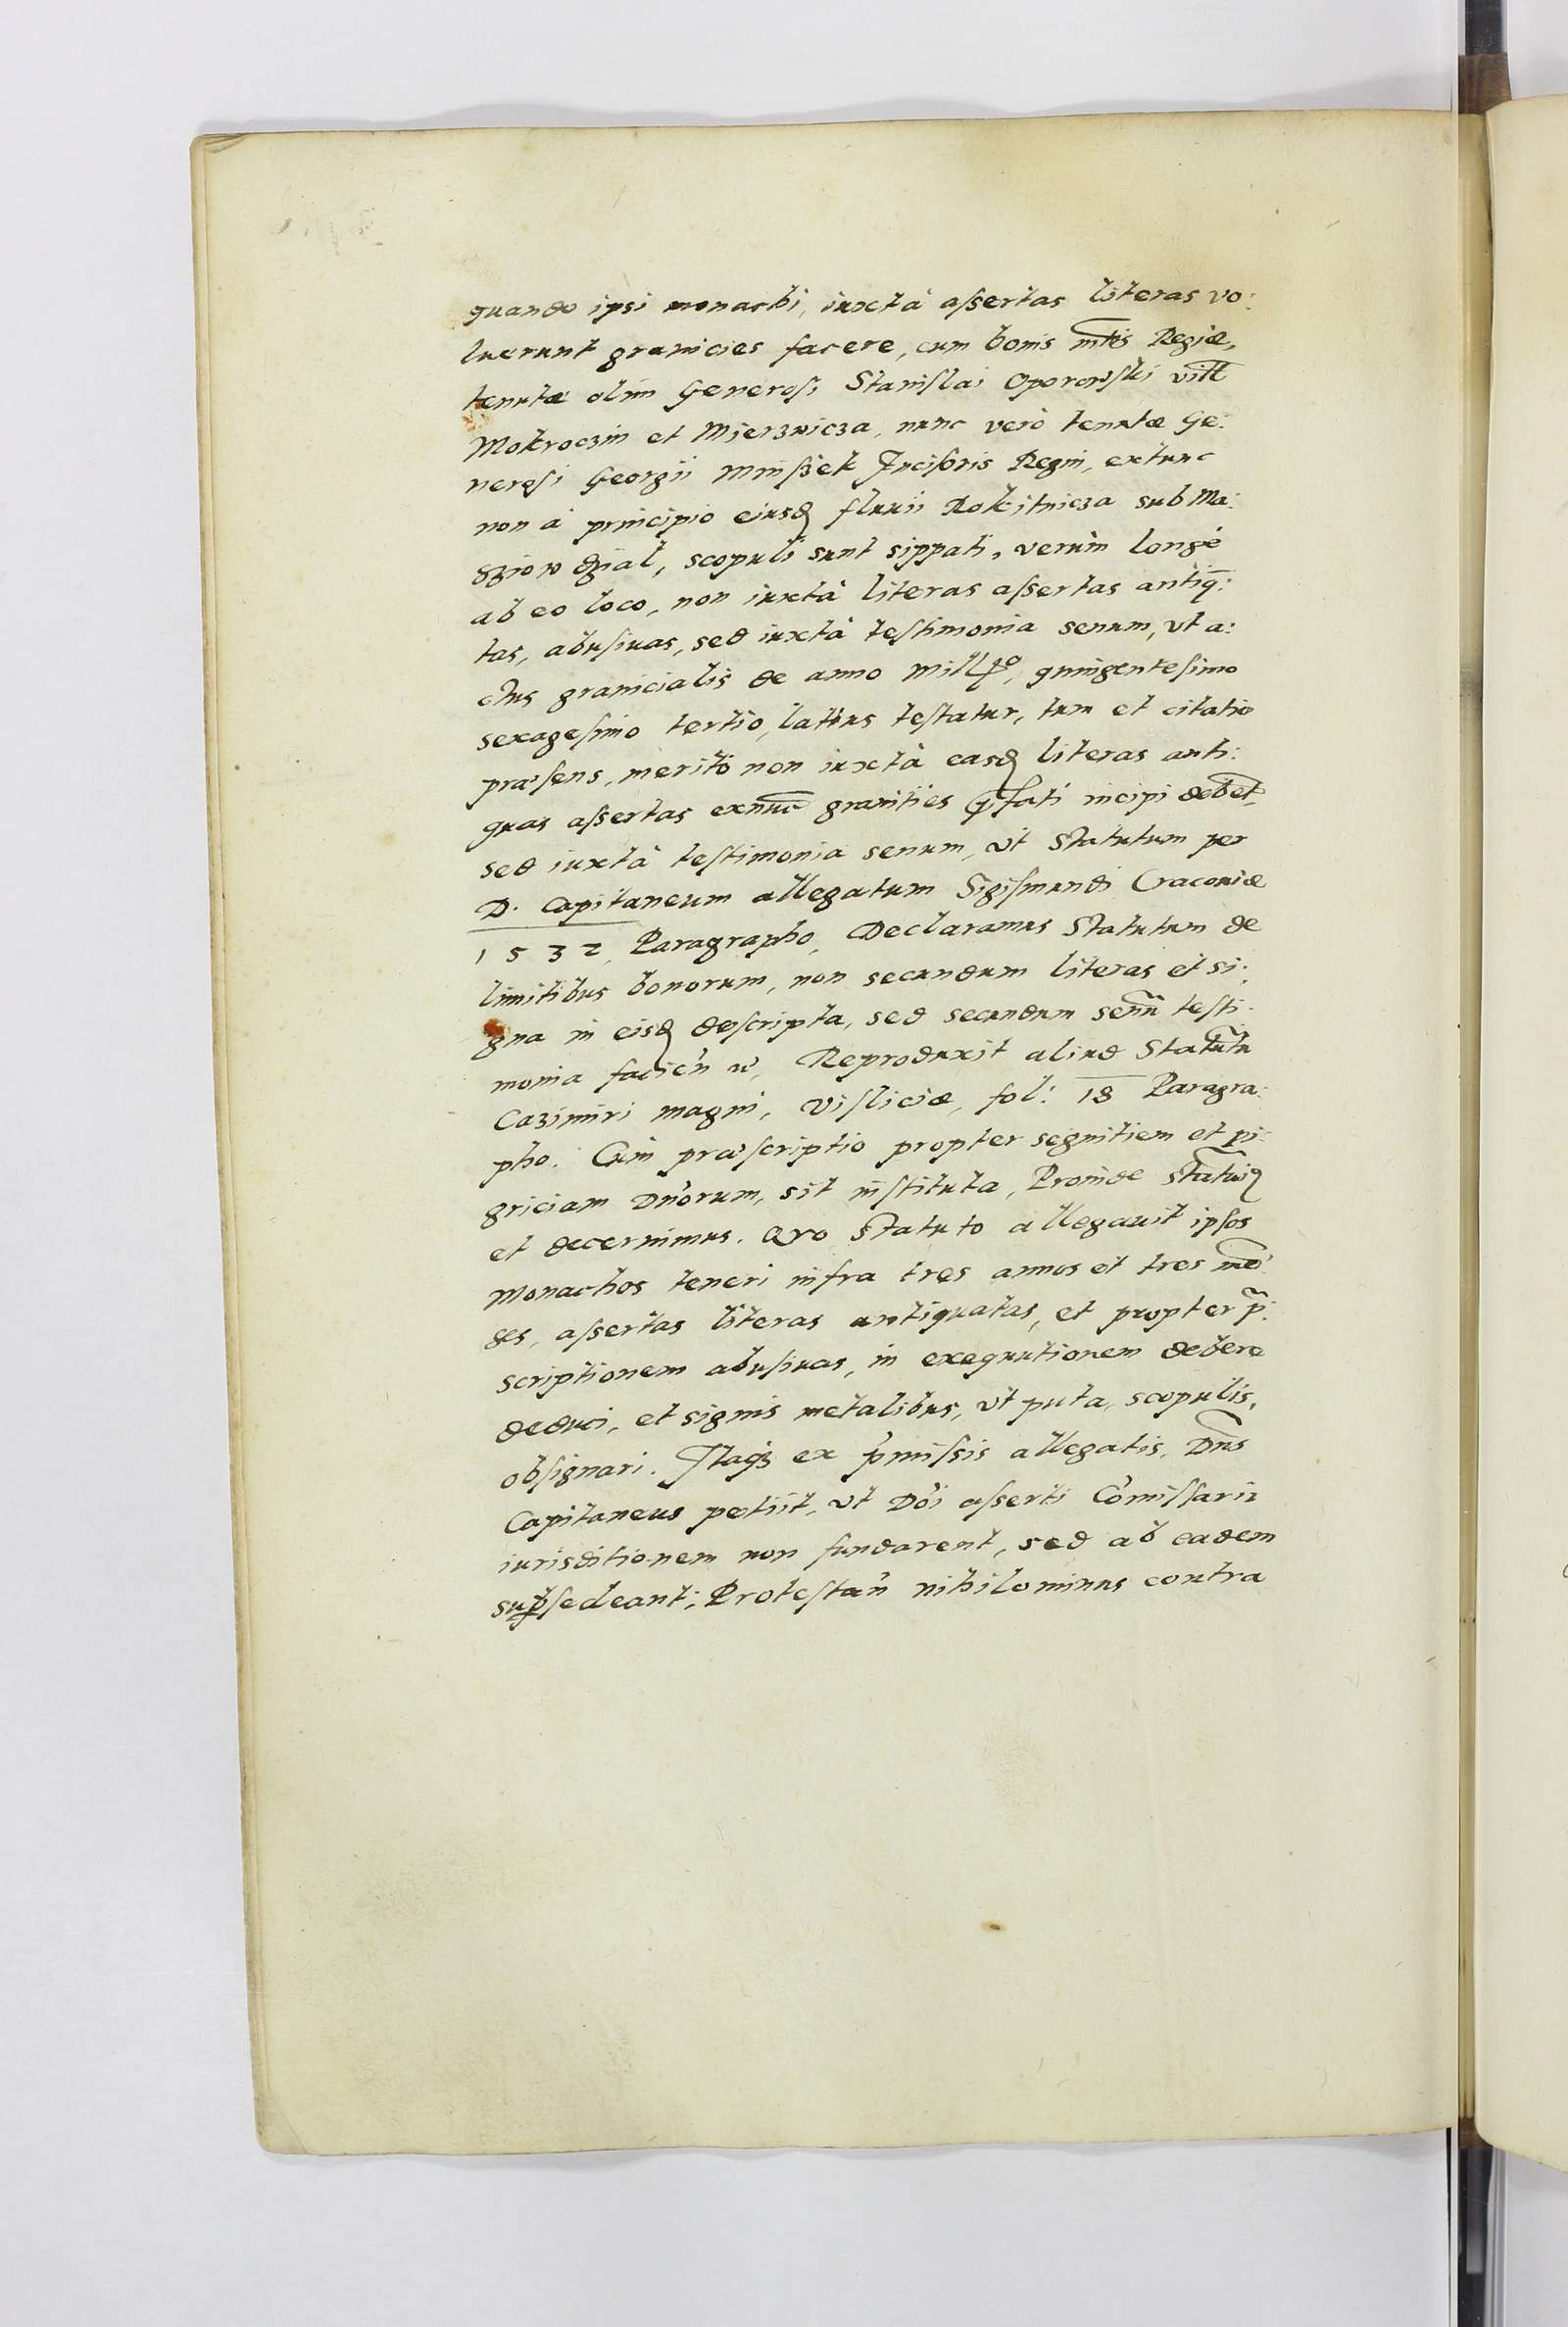 quando ipsi monachi, iuxtà aſsertas literas vo:
luerunt granicies facere, cum bonis mtis Regiæ,
tenutæ olim Generoſi Staniſlai Oporowſki vill
Mokroczin et Mierzuicza, nunc verò tenutæ Ge:
neroſi Georgii Minſzek Inciſoris Regni, extunc
non à principio eiusd fluuii Rokitnicza sub Ma:
dziow dzial, scopuli sunt sippati, verùm longè
ab eo loco, non iuxtà literas aſsertas antiq̃:
tas, abuſiuas, sed iuxtà teſtimonia senum, vt a:
ctus granicialis de anno Millo, quingenteſimo
sexageſimo tertio, latius teſtatur, tum et citatio
præſens, meritò non iuxtà easd literas anti:
quas aſsertas exnunc granities pfati incipi debet,
sed iuxtà teſtimonia senum, vt Statutum per
D. Capitaneum allegatum Sigiſmundi Cracouiæ
1532, Paragrapho, Declaramus Statutum de
limitibus bonorum, non secundum literas et si:
gna in eisd deſcripta, sed secundum senũ teſti:
monia facien̄ &c, Reproduxit aliud Statutũ
Cazimiri magni, viſliciæ, fol: 18 Paragra:
pho. Cùm præſcriptio propter segnitiem et pi:
griciam Dn̄orum, sit inſtituta, Proinde Statuim9
et decernimus. Qvo Statuto allegauit ipſos
Monachos teneri infra tres annos et tres mē
ses, aſsertas literas antiquatas, et propter p̃:
scriptionem abuſiuas, in exequutionem debere
deduci, et signis metalibus, vt puta, scopulis,
obſignari. Itaq3 ex p̄miſsis allegatis, Dn̄s
Capitaneus petiit, vt Dn̄i aſserti Cōmiſsarii
iurisditionem non fundarent, sed ab eadem
supſedeant; Proteſtan̄ nihilominus contra